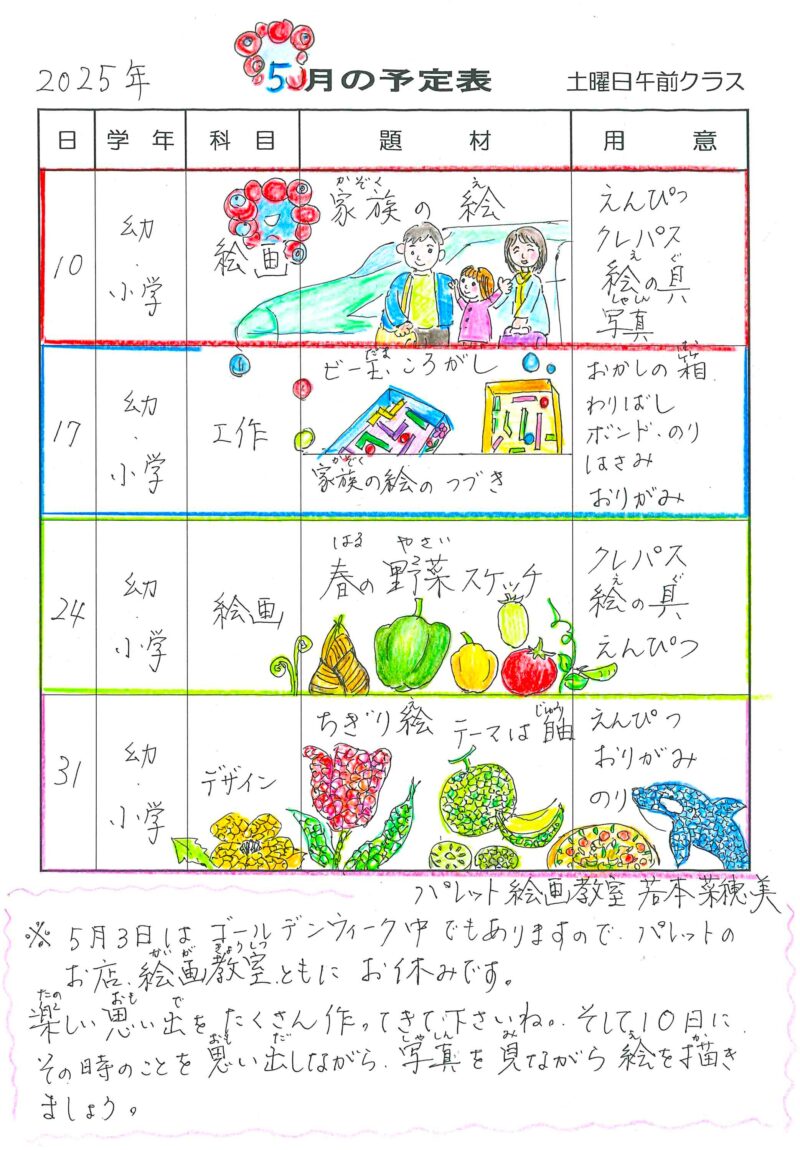 2025年 5月の予定表 土曜日午前クラス
日 学年 科目 題材 用意
10 幼・小学 絵画
かぞく え
家族の絵
えんぴつ
クレパス
え ぐ
絵の具
しゃしん
写真
17 幼・小学 工作
だま
ビー玉ころがし
かぞく え
家族の絵のつづき
はこ
おかしの箱
わりばし
ボンド・のり
はさみ
おりがみ
24 幼・小学 絵画
はる やさい
春の野菜スケッチ
クレパス
え ぐ
絵の具
えんぴつ
31 幼・小学 デザイン
え じゆう
ちぎり絵 テーマは自由
えんぴつ
おりがみ
のり
パレット絵画教室 若本菜穂美
※5月3日はゴールデンウィーク中でもありますので、パレットの
かいが きょうしつ
お店、絵画教室、ともにお休みです。
たの おも で
楽しい思い出をたくさん作ってきて下さいね。そして10日に、
おも だ しゃしん み え か
その時のことを思い出しながら、写真を見ながら絵を描き
ましょう。